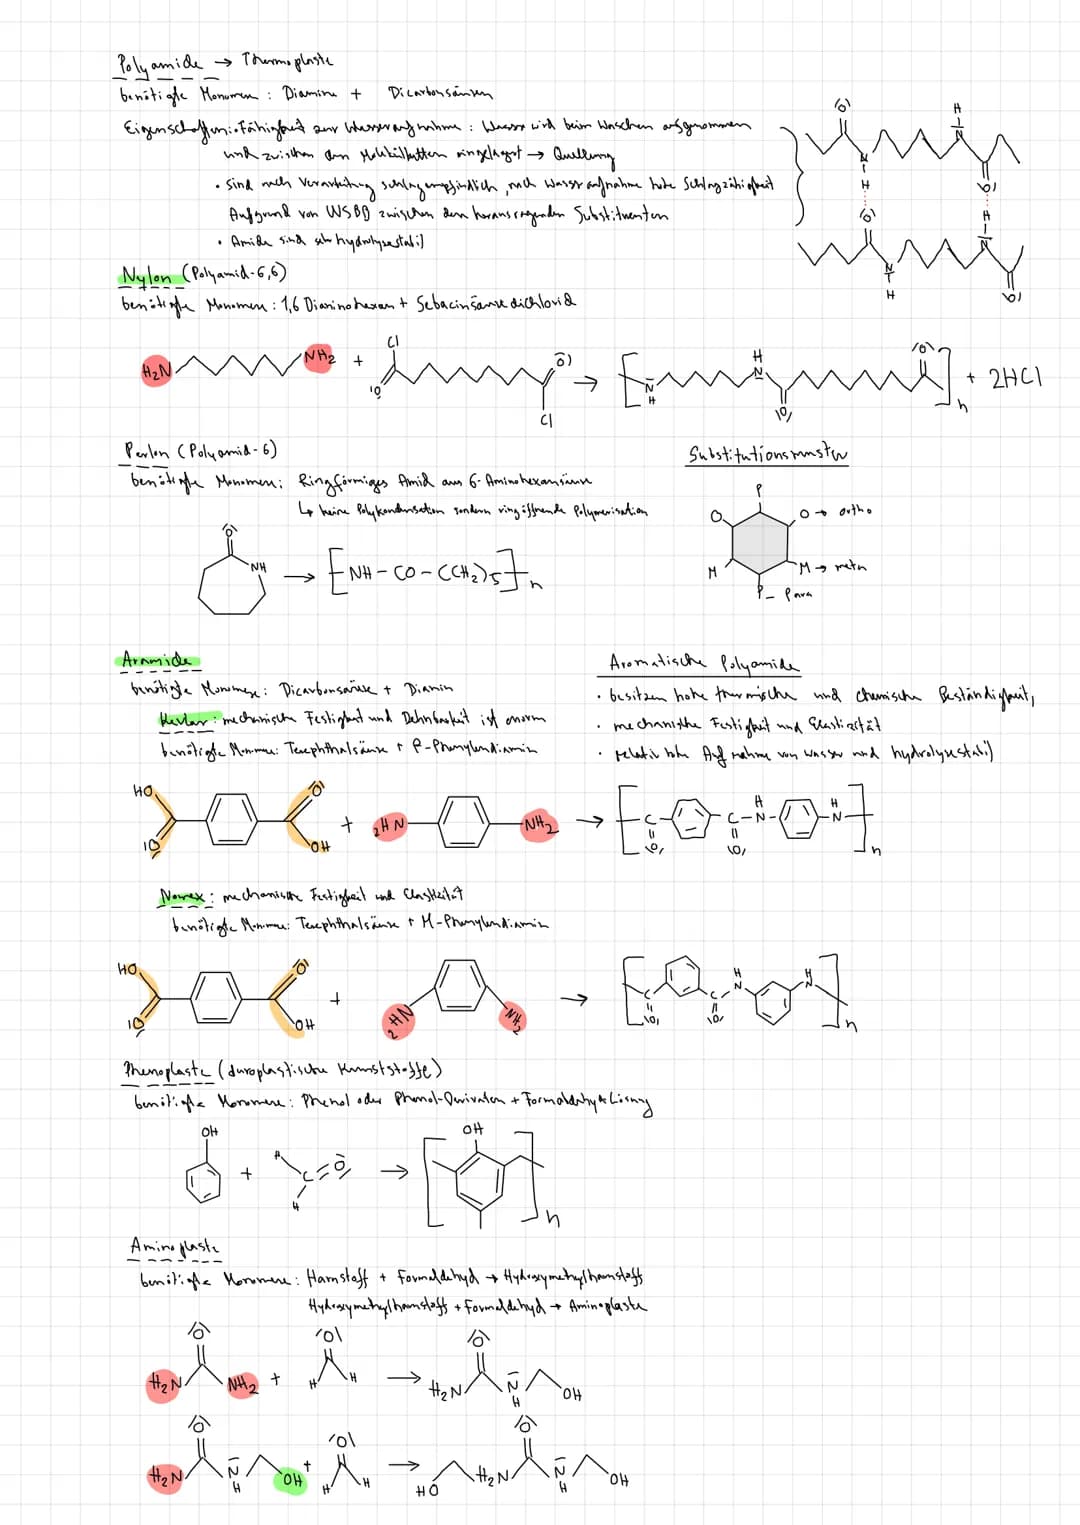 Polyamide → Thermoplaste
benötigte Monomere : Diamine + Dicarbonsäuren
Eigenschaften: • Fähigkeit zur Wasseraufnahme : Wasser wird beim Waschen aufgenommen
und zwischen den Molekülketten eingelagert → Quellung
• Sind nach Verarbeitung schlagempfindlich, nach Wasseraufnahme hohe Schlagzähigkeit
Aufgrund von WSBB zwischen den herausragenden Substituenten
• Amide sind sehr hydrolysestabil
Nylon (Polyamid-6,6)
benötigte Monomere : 1,6 Diaminohexan + Sebacinsäuredichlorid
H2N NH2 + Cl Cl → [ N H H N ]n + 2HCl
Perlon (Polyamid-6)
benötigte Monomere: Ringförmiges Amid aus 6-Aminohexansäure
↳ keine Polykondensation sondern ringöffnende Polymerisation
O NH → [NH-CO-(CH2)5]n
Substitutionsmuster
P
O O → ortho
M M → meta
P - Para
Aramide
benötigte Monomere: Dicarbonsäure + Diamin
Kevlar: mechanische Festigkeit und Dehnbarkeit ist enorm
benötigte Monomere: Terephthalsäure + P-Phenylendiamin
Aromatische Polyamide
• besitzen hohe thermische und chemische Beständigkeit,
• mechanische Festigkeit und Elastizität
• relativ hohe Aufnahme von Wasser und hydrolysestabil
HO O O OH + 2HN NH2 → [ C O C O N H N H ]n
Nomex: mechanische Festigkeit und Elastizität
benötigte Monomere: Terephthalsäure + M-Phenylendiamin
HO O O OH + 2HN NH2 → [ C O C O N H N H ]n
Phenoplaste (duroplastische Kunststoffe)
benötigte Monomere: Phenol oder Phenol-Derivaten + Formaldehyd Lösung
OH + H C=O H → [ OH ]n
Aminoplaste
benötigte Monomere: Harnstoff + Formaldehyd → Hydroxymethylharnstoff
Hydroxymethylharnstoff + Formaldehyd → Aminoplaste
H2N O NH2 + O H H → H2N O N H OH
H2N O N H OH + O H H → HO H2N O N H OH